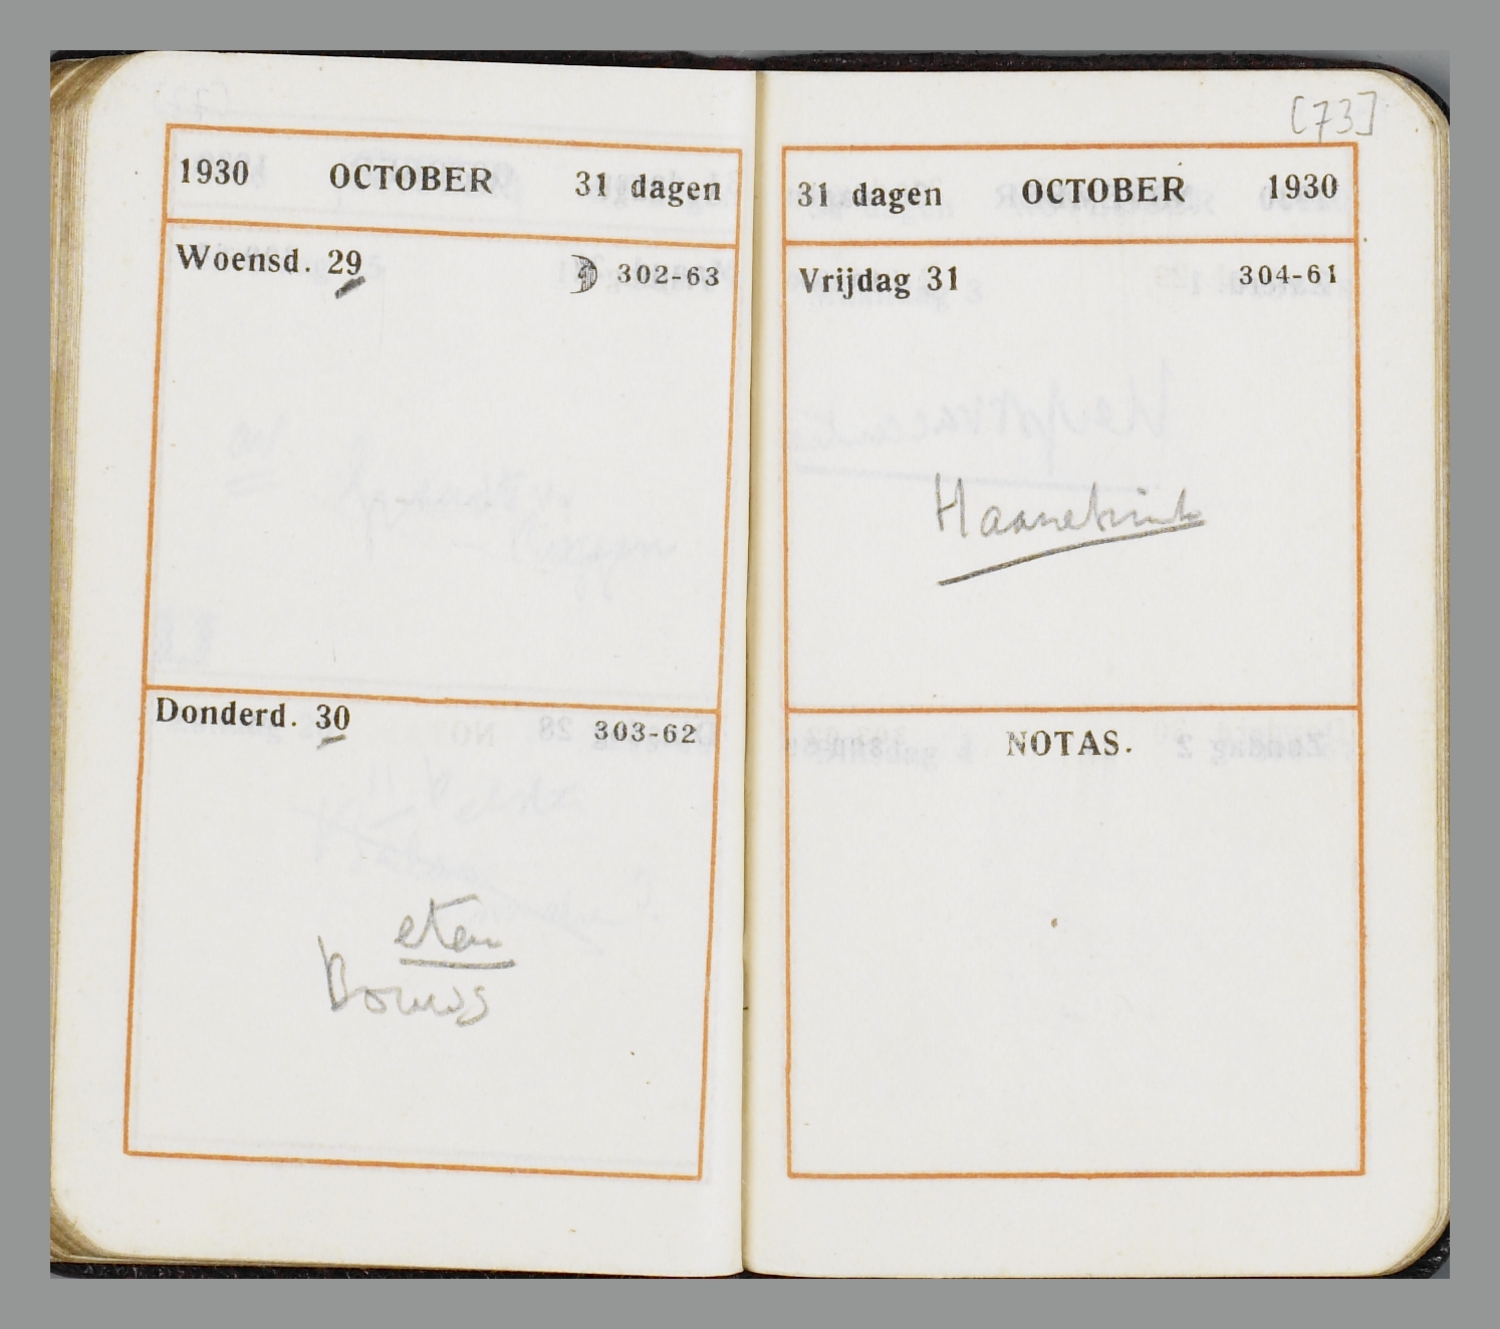 1930 OCTOBER 31 dagen
Woensd. 29 302-63
Donderd. 30 303-62
eten
Bouws
[73]
31 dagen OCTOBER 1930
Vrijdag 31 304-61
NOTAS.